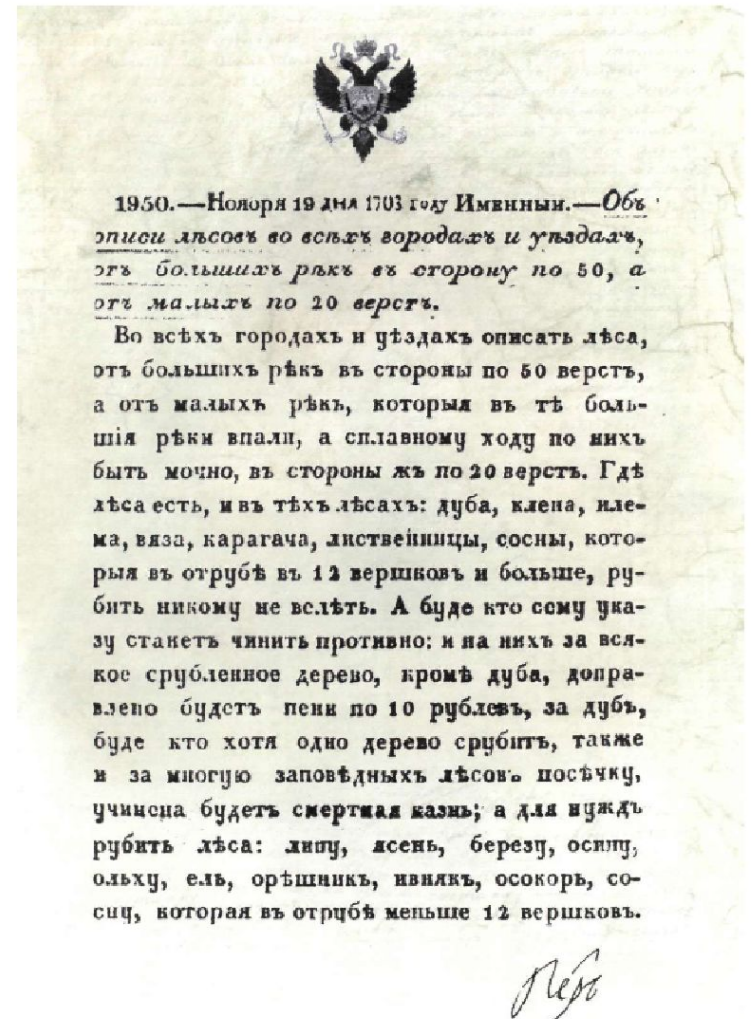 1950.—Ноября 19 дня 1703 году Именный.—Объ
описи лѣсов во всѣхъ городахъ и уѣздахъ,
отъ большихъ рѣкъ въ сторону по 50, а
отъ малыхъ по 20 верстъ.
Во всѣхъ городахъ и уѣздахъ описать лѣса,
отъ большихъ рѣкъ въ стороны по 50 верстъ,
а отъ малыхъ рѣкъ, которыя въ тѣ боль-
шія рѣки впали, а сплавному ходу по нихъ
быть мочно, въ стороны жъ по 20 верстъ. Гдѣ
лѣса есть, и въ тѣхъ лѣсахъ: дуба, клена, иле-
ма, вяза, карагача, лиственницы, сосны, кото-
рыя въ отрубѣ въ 12 вершковъ и больше, ру-
бить никому не велѣть. А буде кто сему ука-
зу станетъ чинить противно: и на нихъ за вся-
кое срубленное дерево, кромѣ дуба, допра-
влено будетъ пени по 10 рублевъ, за дубъ,
буде кто хотя одно дерево срубитъ, также
и за многую заповѣдныхъ лѣсовъ посѣчку,
учинена будетъ смертная казнь; а для нуждъ
рубить лѣса: липу, ясень, березу, осину,
ольху, ель, орѣшникъ, ивнякъ, осокорь, со-
сну, которая въ отрубѣ меньше 12 вершковъ.